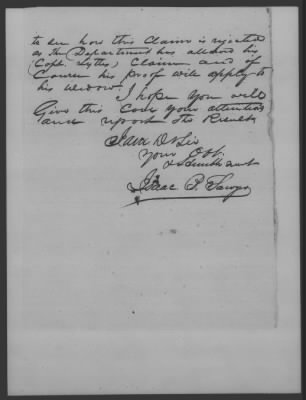 to see how this Claim is rejected
as the Department has allowed his
(Capt. Lytle) Claim and of
Course his proof will apply to
his widow. I hope you will
Give this Case your attention
and report the Result
I am D Sir
Your Obt.
& humble svt
Isaac P.